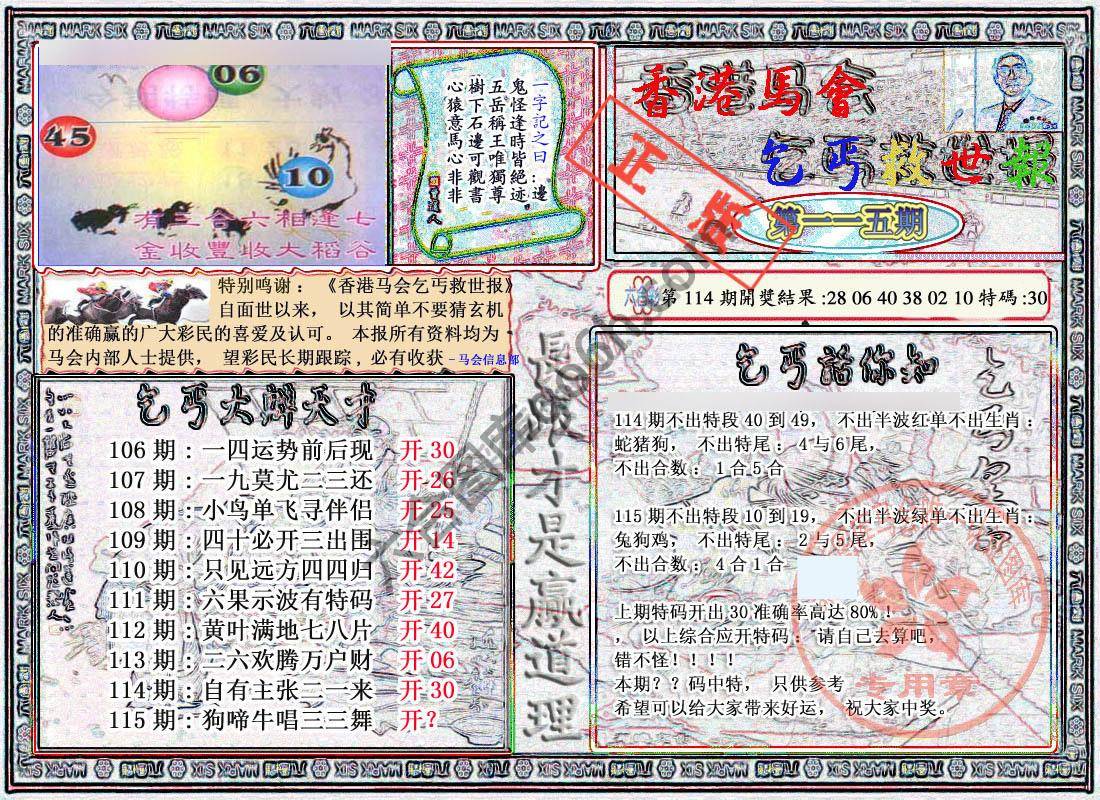 06
45
10
有三合六相逢七
金收豐收大稻谷
一字記之曰：邊
鬼怪逢時皆絕迹
五岳稱王唯獨尊
樹下石邊可觀書
心猿意馬心非非
香港馬會
乞丐救世報
第一一五期
正
特别鸣谢：《香港马会乞丐救世报》
自面世以来， 以其简单不要猜玄机
的准确赢的广大彩民的喜爱及认可。 本报所有资料均为
马会内部人士提供， 望彩民长期跟踪，必有收获－马会信息部
第114期開獎結果:28 06 40 38 02 10 特碼:30
106期：一四运势前后现 开30
107期：一九莫尤三三还 开26
108期：小鸟单飞寻伴侣 开25
109期：四十必开三出围 开14
110期：只见远方四四归 开42
111期：六果示波有特码 开27
112期：黄叶满地七八片 开40
113期：三六欢腾万户财 开06
114期：自有主张三一来 开30
115期：狗啼牛唱三三舞 开？
才是赢道理
乞丐話你知
114期不出特段40到49， 不出半波红单不出生肖：
蛇猪狗， 不出特尾：4与6尾，
不出合数：1合5合
115期不出特段10到19， 不出半波绿单不出生肖：
兔狗鸡， 不出特尾：2与5尾，
不出合数：4合1合
上期特码开出30准确率高达80%！
， 以上综合应开特码： 请自己去算吧，
错不怪！！！！
本期？？码中特， 只供参考
希望可以给大家带来好运， 祝大家中奖。
专用章
MARK SIX